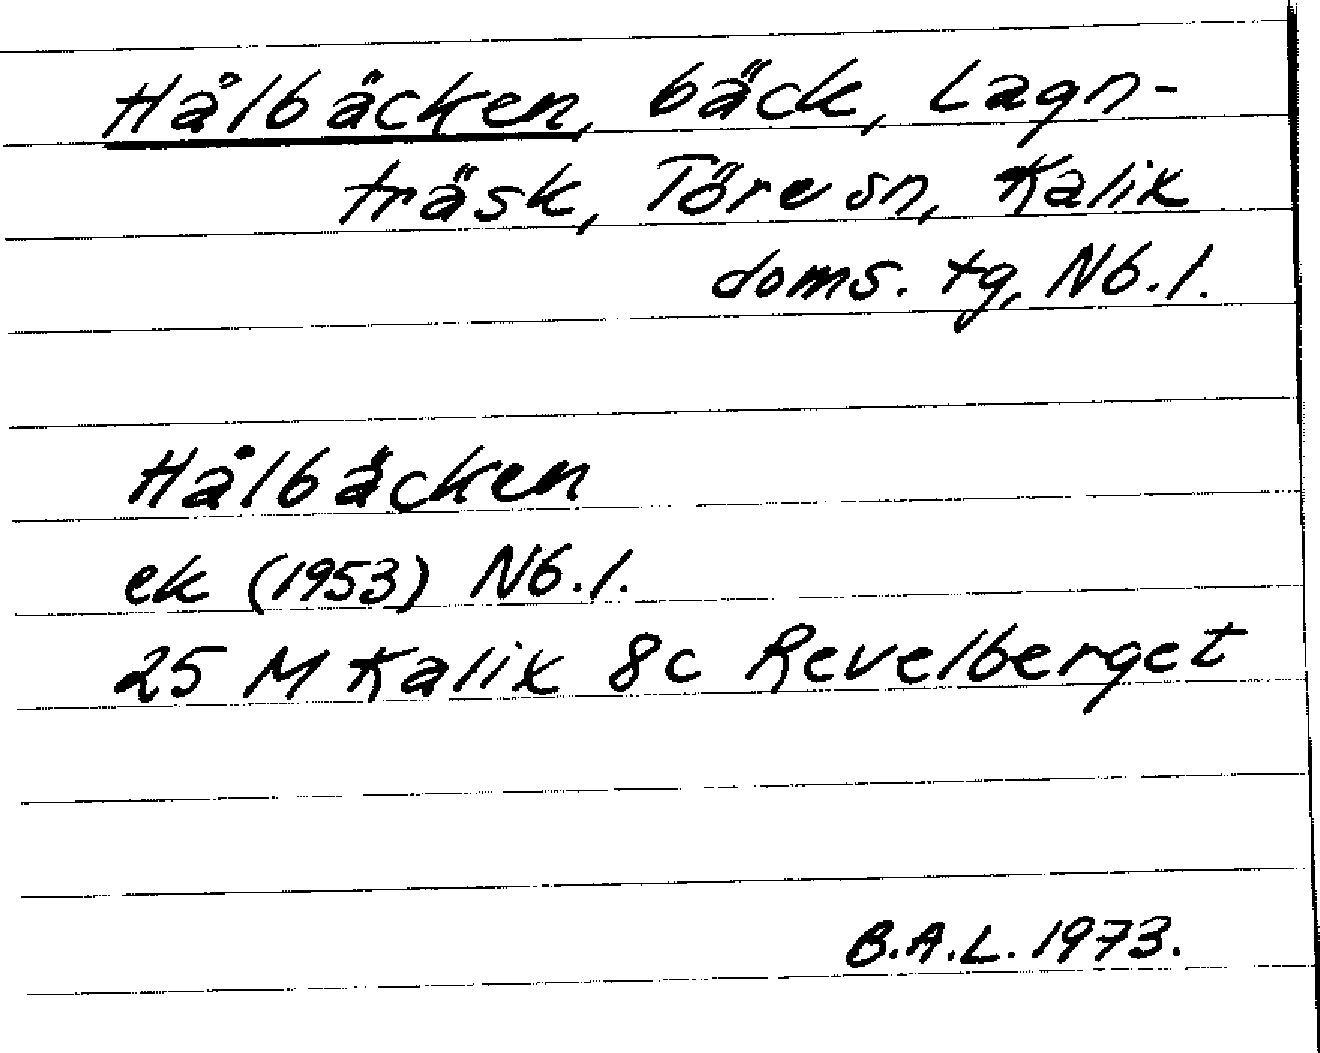 Hålbäcken, bäck, Lagn-
träsk, Töre sn, Kalix
doms. tg, Nb.l.
Hålbäcken
ek (1953) Nb.l.
25 M Kalix 8c Revelberget
B.A.L. 1973.